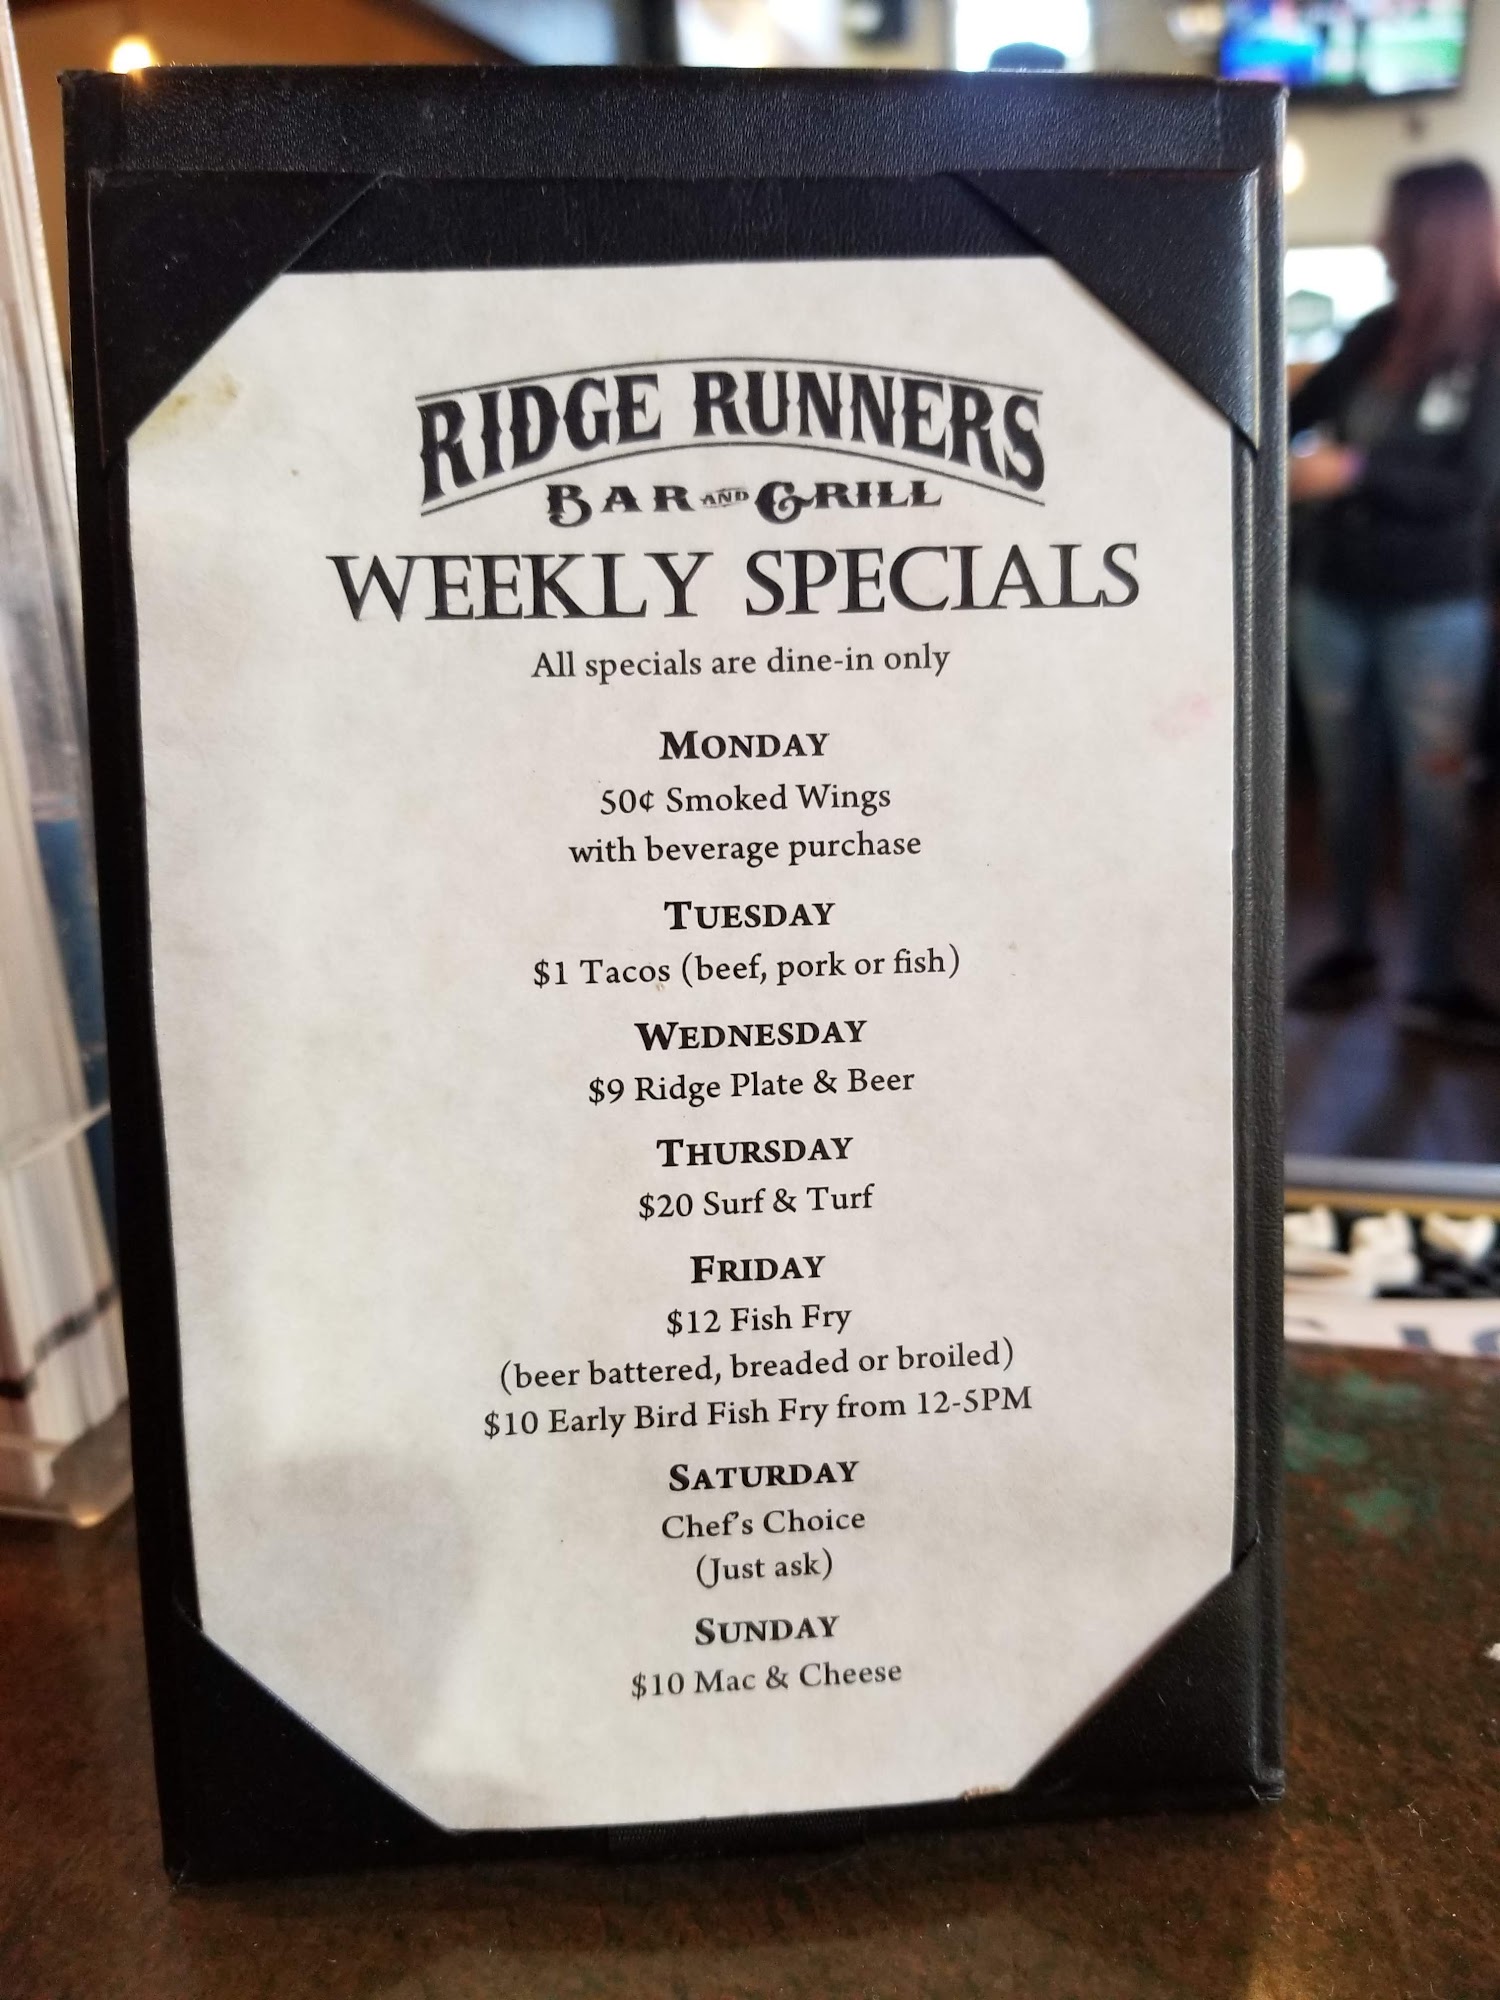 RIDGE RUNNERS
BAR AND GRILL
WEEKLY SPECIALS
All specials are dine-in only
MONDAY
50¢ Smoked Wings
with beverage purchase
TUESDAY
$1 Tacos (beef, pork or fish)
WEDNESDAY
$9 Ridge Plate & Beer
THURSDAY
$20 Surf & Turf
FRIDAY
$12 Fish Fry
(beer battered, breaded or broiled)
$10 Early Bird Fish Fry from 12-5PM
SATURDAY
Chef's Choice
(Just ask)
SUNDAY
$10 Mac & Cheese